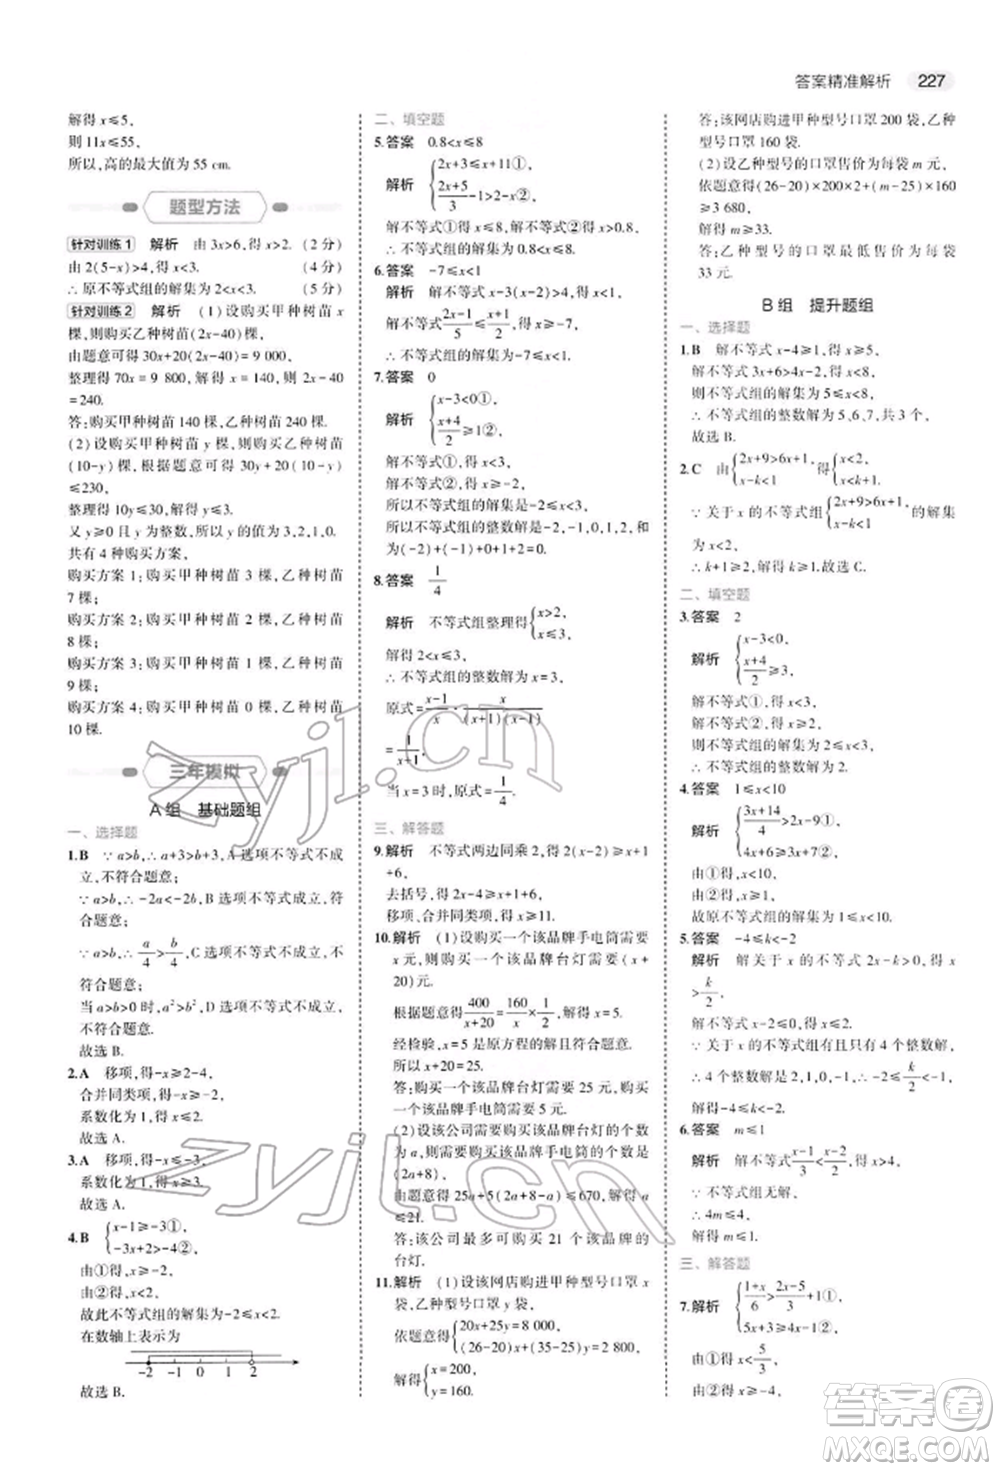 答案精准解析 227
解得 x≤5,
则 11x≤55,
所以,高的最大值为 55 cm.
题型方法
针对训练 1 解析 由 3x>6,得 x>2. (2 分)
由 2(5-x)>4,得 x<3. (4 分)
∴ 原不等式组的解集为 2<x<3. (5 分)
针对训练 2 解析 (1)设购买甲种树苗 x
棵,则购买乙种树苗(2x-40)棵,
由题意可得 30x+20(2x-40)= 9 000,
整理得 70x = 9 800,解得 x = 140,则 2x-40
=240.
答:购买甲种树苗 140 棵,乙种树苗 240 棵.
(2)设购买甲种树苗 y 棵,则购买乙种树苗
(10-y)棵,根据题意可得 30y+20(10-y)
≤230,
整理得 10y≤30,解得 y≤3.
又 y≥0 且 y 为整数,所以 y 的值为 3,2,1,0.
共有 4 种购买方案,
购买方案 1:购买甲种树苗 3 棵,乙种树苗
7 棵;
购买方案 2:购买甲种树苗 2 棵,乙种树苗
8 棵;
购买方案 3:购买甲种树苗 1 棵,乙种树苗
9 棵;
购买方案 4:购买甲种树苗 0 棵,乙种树苗
10 棵.
三年模拟
A 组 基础题组
一、选择题
1.B ∵ a>b,∴ a+3>b+3,A 选项不等式不成
立,不符合题意;
∵ a>b,∴ -2a<-2b,B 选项不等式成立,符
合题意;
∵ a>b,∴ a/4>b/4,C 选项不等式不成立,不
符合题意;
当 a>b>0 时,a²>b²,D 选项不等式不成立,
不符合题意.
故选 B.
2.A 移项,得-x≥2-4,
合并同类项,得-x≥-2,
系数化为 1,得 x≤2.
故选 A.
3.A 移项,得-2x<6,
系数化为 1,得 x>-3.
故选 A.
4.B {x-1≥-3①,
-3x+2>-4②,
由①得,x≥-2,
由②得,x<2,
故此不等式组的解集为-2≤x<2.
在数轴上表示为
-2 -1 0 1 2
故选 B.
二、填空题
5.答案 0.8<x≤8
解析 {2x+3≤x+11①,
(2x+5)/3-1>2-x②,
解不等式①得 x≤8,解不等式②得 x>0.8,
∴ 不等式组的解集为 0.8<x≤8.
6.答案 -7≤x<1
解析 解不等式 x-3(x-2)>4,得 x<1,
解不等式 (2x-1)/5≤(x+1)/2,得 x≥-7,
则不等式组的解集为-7≤x<1.
7.答案 0
解析 {x-3<0①,
(x+4)/2≥1②,
解不等式①得,x<3,
解不等式②得,x≥-2,
所以不等式组的解集为-2≤x<3,
所以不等式组的整数解为-2,-1,0,1,2,
和为(-2)+(-1)+0+1+2=0.
8.答案 1/4
解析 不等式组整理得{x>2,
x≤3,
解得 2<x≤3,
∴ 不等式组的整数解为 x=3,
原式=(x-1)/x·x/((x+1)(x-1))
=1/(x+1),
当 x=3 时,原式=1/4.
三、解答题
9.解析 不等式两边同乘 2,得 2(x-2)≥x+1
+6,
去括号,得 2x-4≥x+1+6,
移项、合并同类项,得 x≥11.
10.解析 (1)设购买一个该品牌手电筒需要
x 元,则购买一个该品牌台灯需要(x+
20)元,
根据题意得 400/(x+20)=160/x×1/2,解得 x=5.
经检验,x=5 是原方程的解且符合题意.
∴ x+20=25.
答:购买一个该品牌台灯需要 25 元,购买
一个该品牌手电筒需要 5 元.
(2)设该公司需要购买该品牌台灯的个数
为 a,则需要购买该品牌手电筒的个数是
(2a+8),
由题意得 25a+5(2a+8-a)≤670,解得 a
≤21.
答:该公司最多可购买 21 个该品牌的
台灯.
11.解析 (1)设该网店购进甲种型号口罩 x
袋,乙种型号口罩 y 袋,
依题意得{20x+25y=8 000,
(26-20)x+(35-25)y=2 800,
解得{x=200,
y=160.
答:该网店购进甲种型号口罩 200 袋,乙种
型号口罩 160 袋.
(2)设乙种型号的口罩售价为每袋 m 元,
依题意得(26-20)×200×2+(m-25)×160
≥3 680,
解得 m≥33.
答:乙种型号的口罩售价为每袋
33 元.
B 组 提升题组
一、选择题
1.B 解不等式 x-4≥1,得 x≥5,
解不等式 3x+6>4x-2,得 x<8,
则不等式组的解集为 5≤x<8,
∴ 不等式组的整数解为 5、6、7,共 3 个,
故选 B.
2.C 由{2x+9>6x+1,
x-k<1 得{x<2,
x<k+1.
∵ 关于 x 的不等式组{2x+9>6x+1,
x-k<1 的解集
为 x<2,
∴ k+1≥2,解得 k≥1.故选 C.
二、填空题
3.答案 2
解析 {x-3<0①,
(x+4)/2≥3②,
解不等式①,得 x<3,
解不等式②,得 x≥2,
则不等式组的解集为 2≤x<3,
∴ 不等式组的整数解是 2.
4.答案 1≤x<10
解析 {(3x+14)/4>2x-9①,
4x+6≥3x+7②,
由①得,x<10,
由②得,x≥1,
故原不等式组的解集为 1≤x<10.
5.答案 -4≤k<-2
解析 解关于 x 的不等式 2x-k>0,得 x
>k/2,
解不等式 x-2≤0,得 x≤2,
∵ 关于 x 的不等式组有且只有 4 个整数解,
∴ 4 个整数解为 2,1,0,-1,∴ -2≤k/2<-1,
解得-4≤k<-2.
6.答案 m≤1
解析 解不等式(x-1)/3<(x-2)/2,得 x>4,
∵ 不等式组无解,
∴ 4m≤4,
解得 m≤1.
三、解答题
7.解析 {(1+x)/6>(2x-5)/3+1①,
5x+3≥4x-1②,
由①得 x<5/3,
由②得 x≥-4,
zyjl.cn
zyjl.cn
答案圈
MXQE.COM